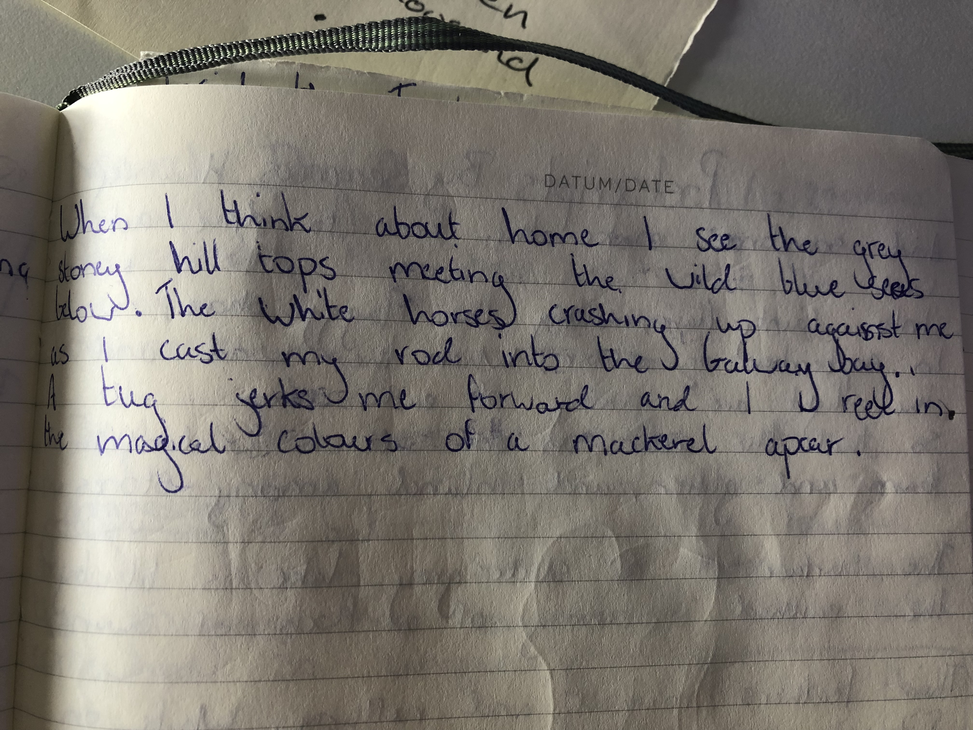 en
nd
DATUM/DATE
When I think about home I see the grey
ng stoney hill tops meeting the wild blue seas
below. The white horses crashing up against me
as I cast my rod into the Galway bay..
A tug jerks me forward and I reel in.
the magical colours of a mackerel apear.